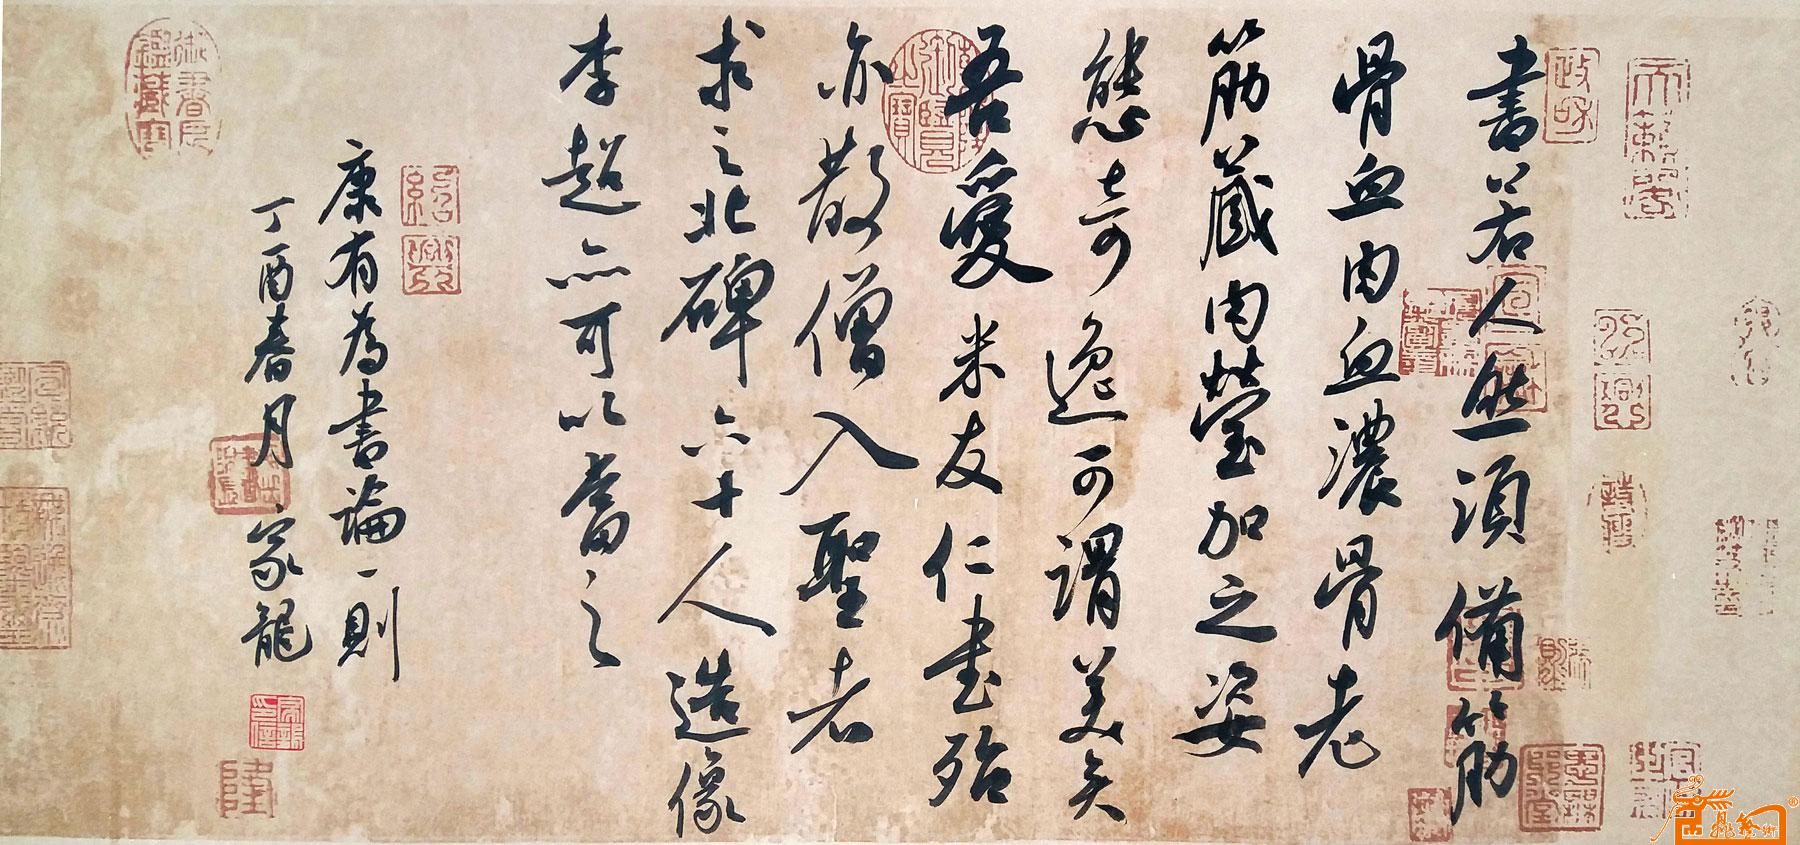 書若人然須備筋
骨血肉血濃骨老
筋藏肉瑩加之姿
態奇逸可謂美矣
吾愛米友仁書殆
亦散僧入聖者
求之北碑六十人造像
李超亦可以當之
康有為書論一則
丁酉春月家龍
政和
紹興
陸